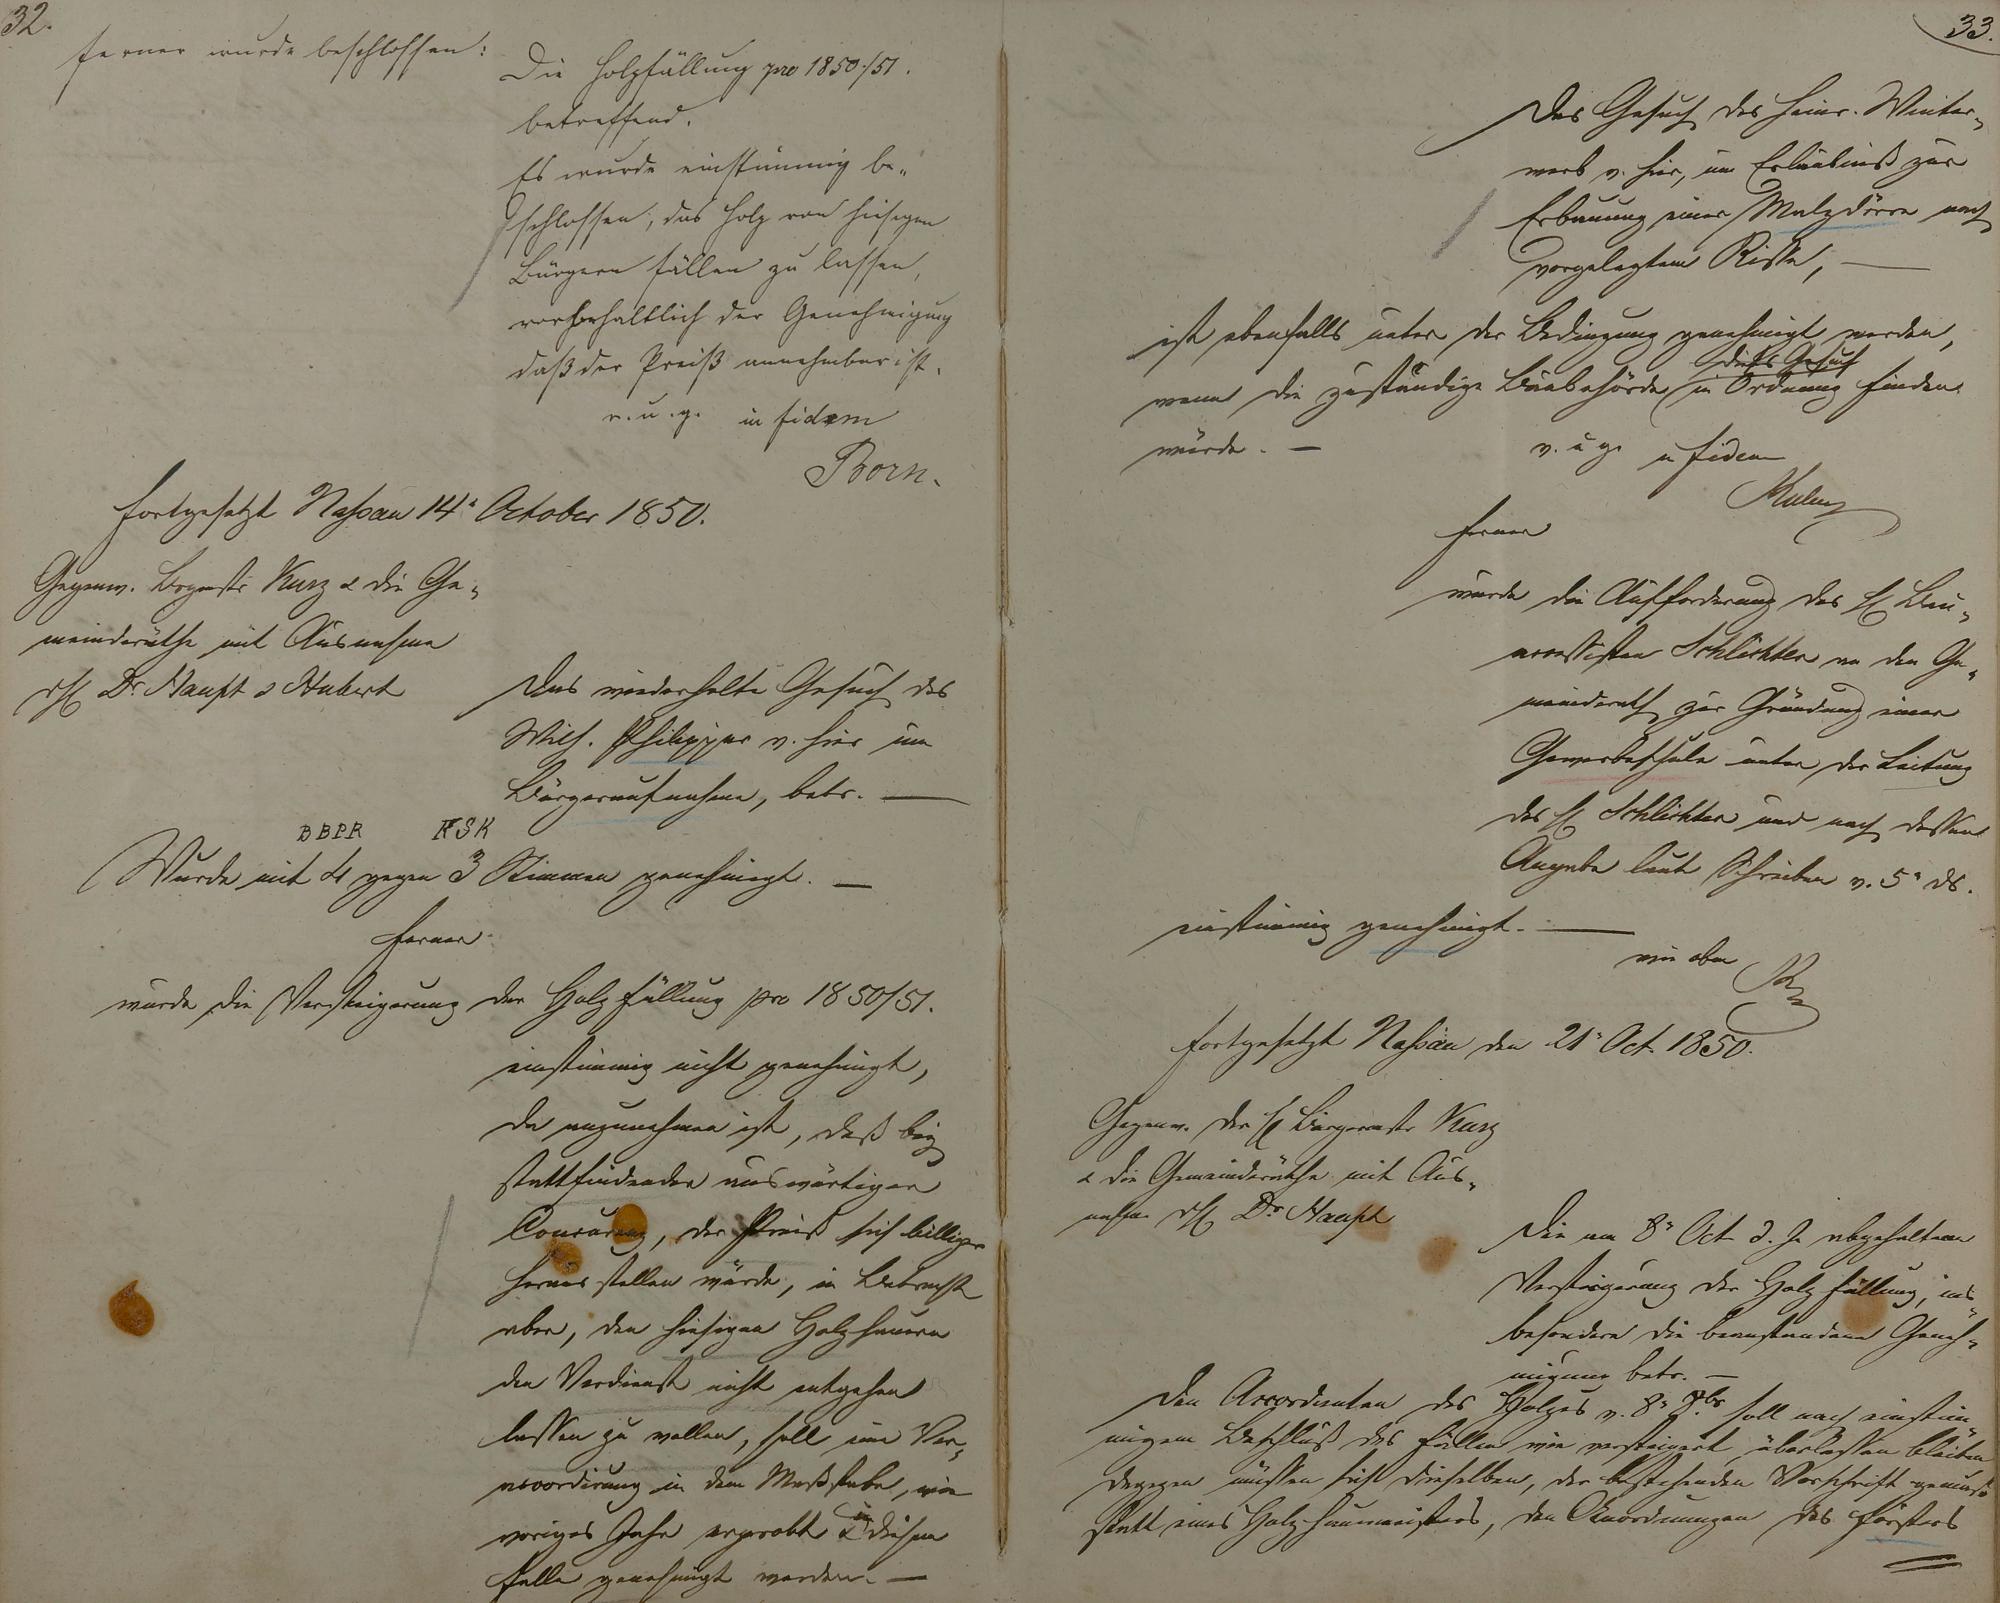 32.
ferner wurde beschlossen:
Die Holzfällung pro 1850/51.
betreffend.
Es wurde einstimmig be„
schlossen, das Holz von hiesigen
Bürgern fällen zu lassen,
vorbehaltlich der Genehmigung
daß der Preiß annehmbar ist.
v. u. g. in fidem
Born.
fortgesetzt Nassau 14" October 1850.
Gegenw. Bgrmstr Kurz & die Ge„
meinderäthe mit Ausnahme
Dr Haupt & Hubert
Das wiederholte Gesuch des
Wilh. Philippar v. hier um
Bürgeraufnahme, betr. —
BBPR KSK
Wurde mit 4 gegen 3 Stimmen genehmigt. —
ferner
wurde die Versteigerung der Holzfällung pro 1850/51.
einstimmig nicht genehmigt,
da anzunehmen ist, daß bey
stattfindender auswärtiger
Concurenz, der Preiß sich billiger
heraus stellen würde, in Betracht
aber, den hiesigen Holzhauern
den Verdienst nicht entgehen
lassen zu wollen, soll eine Ver„
accordirung in dem Maßstabe, wie
voriges Jahr erprobt & in diesem
Falle genehmigt werden. —
33.
Das Gesuch des Heinr. Winter„
werb v. hier, um Erlaubniß zur
Erbauung einer Malzdörre nach
vorgelegtem Risse, —
ist ebenfalls unter der Bedingung genehmigt worden,
wenn die zuständige Baubehörde dieses Gesuch in Ordnung finden
würde. — v. u g. in fidem
ferner
wurde die Aufforderung des H Bau„
accessisten Schlichter an den Ge„
meinderath zur Gründung einer
Gewerbeschule unter der Leitung
des H Schlichter und nach dessen
Angabe laut Schreiben v. 5" ds.
einstimmig genehmigt. —
wie oben
fortgesetzt Nassau den 21" Oct. 1850.
Gegenw. der H Bürgermstr Kurz
& die Gemeinderäthe mit Aus„
nahme Dr Haupt
Die am 8" Oct d. J. abgehaltene
Versteigerung der Holzfällung, ins„
besondere die beanstandene Geneh„
migung betr. —
Den Accordanten des Holzes v. 8" 8br soll nach einstim„
migem Beschluß das Fällen wie versteigert, überlassen bleiben
dagegen müssen sich dieselben, der bestehenden Vorschrift gemäß
statt eines Holzhauermeisters, den Anordnungen des Försters